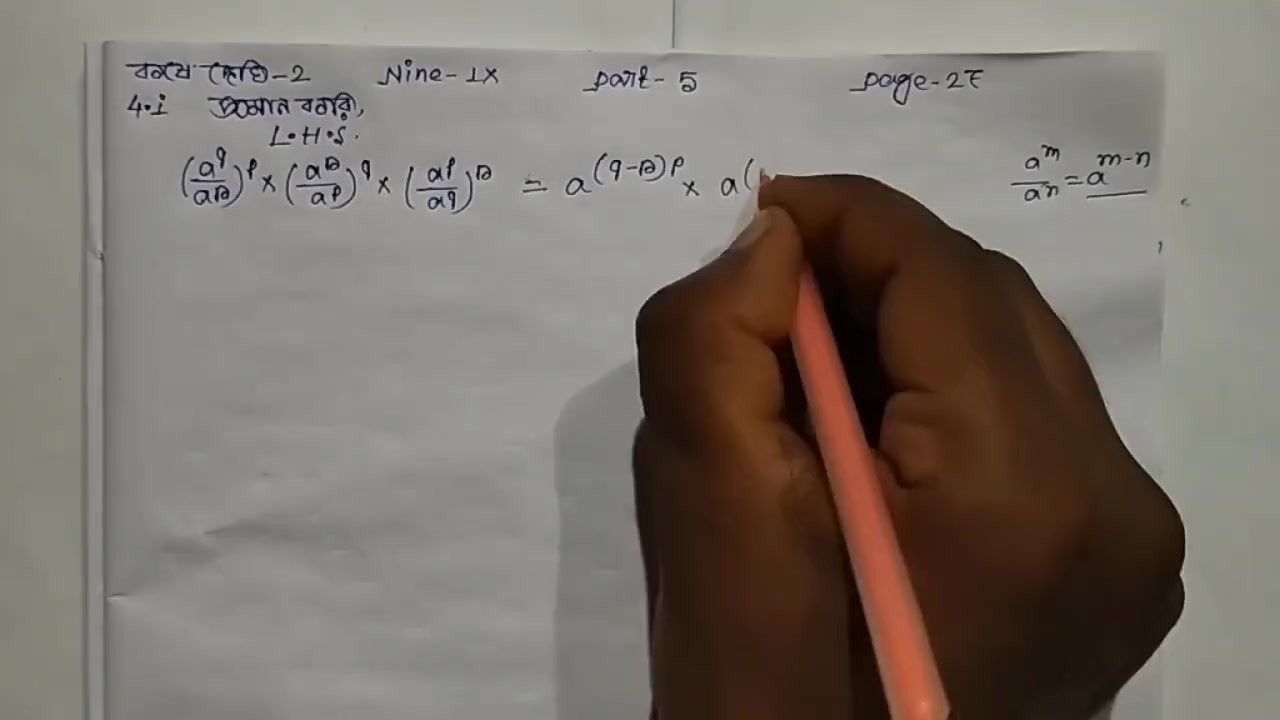 কষে দেখি-2 Nine-IX Part-5 Page-27
4.i প্রমাণ করি,
L.H.S.
(a^q/a^r)^p × (a^r/a^p)^q × (a^p/a^q)^r = a^(q-r)p × a^( a^m/a^n = a^m-n